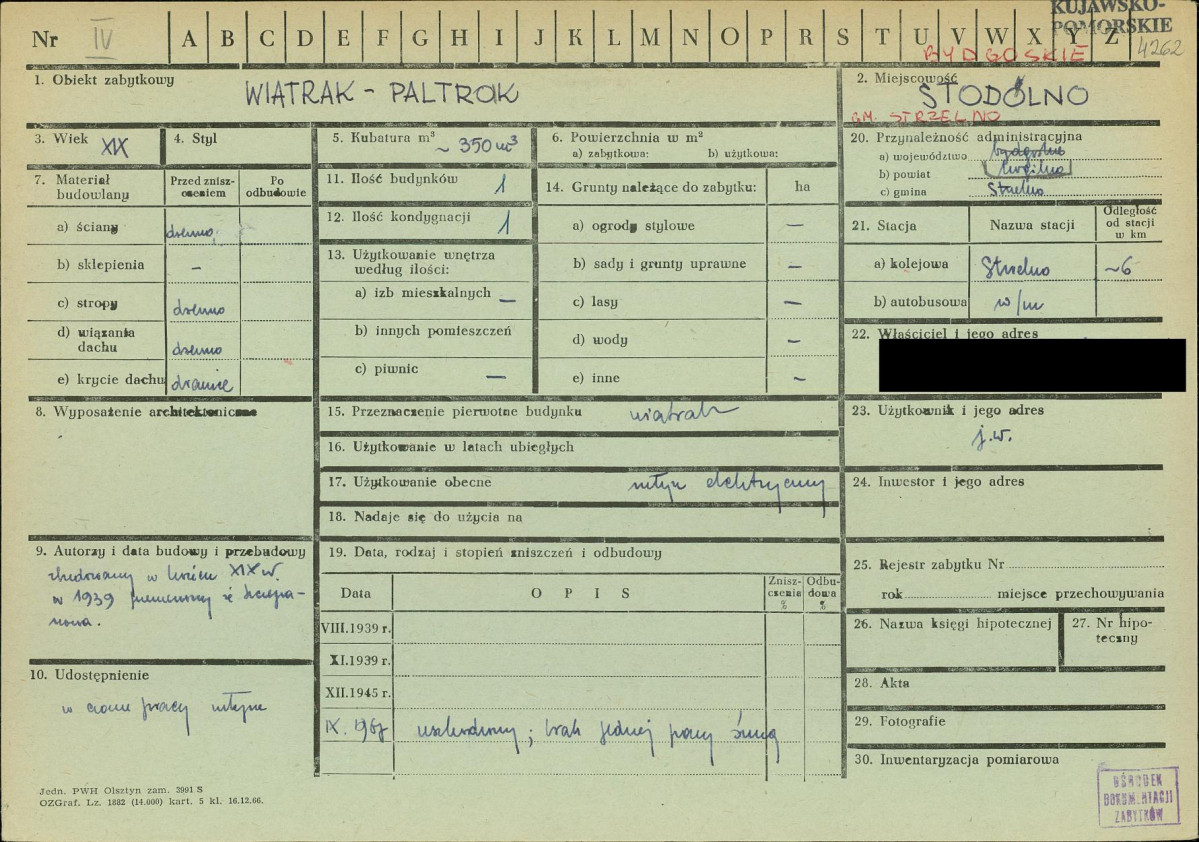 KUJAWSKO-
POMORSKIE
4262
Nr IV A B C D E F G H I J K L M N O P R S T U V W X Y Z
BYDGOSKIE
1. Obiekt zabytkowy
WIATRAK - PALTRAK
2. Miejscowość
STODÓLNO
GM. STRZELNO
3. Wiek XIX
4. Styl
5. Kubatura m³ ~ 350 m³
6. Powierzchnia w m²
a) zabytkowa: b) użytkowa:
20. Przynależność administracyjna
a) województwo bydgoskie
b) powiat
c) gmina Strzelno
7. Materiał budowlany
Przed zniszczeniem
Po odbudowie
a) ściany drewno
b) sklepienia –
c) stropy drewno
d) wiązania dachu drewno
e) krycie dachu dranice
11. Ilość budynków 1
12. Ilość kondygnacji 1
13. Użytkowanie wnętrza według ilości:
a) izb mieszkalnych –
b) innych pomieszczeń
c) piwnic –
14. Grunty należące do zabytku: ha
a) ogrody stylowe –
b) sady i grunty uprawne –
c) lasy –
d) wody –
e) inne –
21. Stacja
Nazwa stacji
Odległość od stacji w km
a) kolejowa Strzelno ~6
b) autobusowa w/m
22. Właściciel i jego adres
8. Wyposażenie architektoniczne
15. Przeznaczenie pierwotne budynku wiatrak
16. Użytkowanie w latach ubiegłych
17. Użytkowanie obecne młyn elektryczny
18. Nadaje się do użycia na
23. Użytkownik i jego adres
j.w.
24. Inwestor i jego adres
9. Autorzy i data budowy i przebudowy
zbudowany w końcu XIX w.
w 1939 przeniesiony ze Szczepa-
nowa.
10. Udostępnienie
w czasie pracy młyna
19. Data, rodzaj i stopień zniszczeń i odbudowy
Data
O P I S
Zniszczenia %
Odbudowa %
VIII.1939 r.
XI.1939 r.
XII.1945 r.
IX. 1967 uszkodzony; brak jednej pary śmig
25. Rejestr zabytku Nr
rok miejsce przechowywania
26. Nazwa księgi hipotecznej
27. Nr hipoteczny
28. Akta
29. Fotografie
30. Inwentaryzacja pomiarowa
Jedn. PWH Olsztyn zam. 3991 S
OZGraf. Lz. 1882 (14.000) kart. 5 kl. 16.12.66.
OŚRODEK
DOKUMENTACJI
ZABYTKÓW